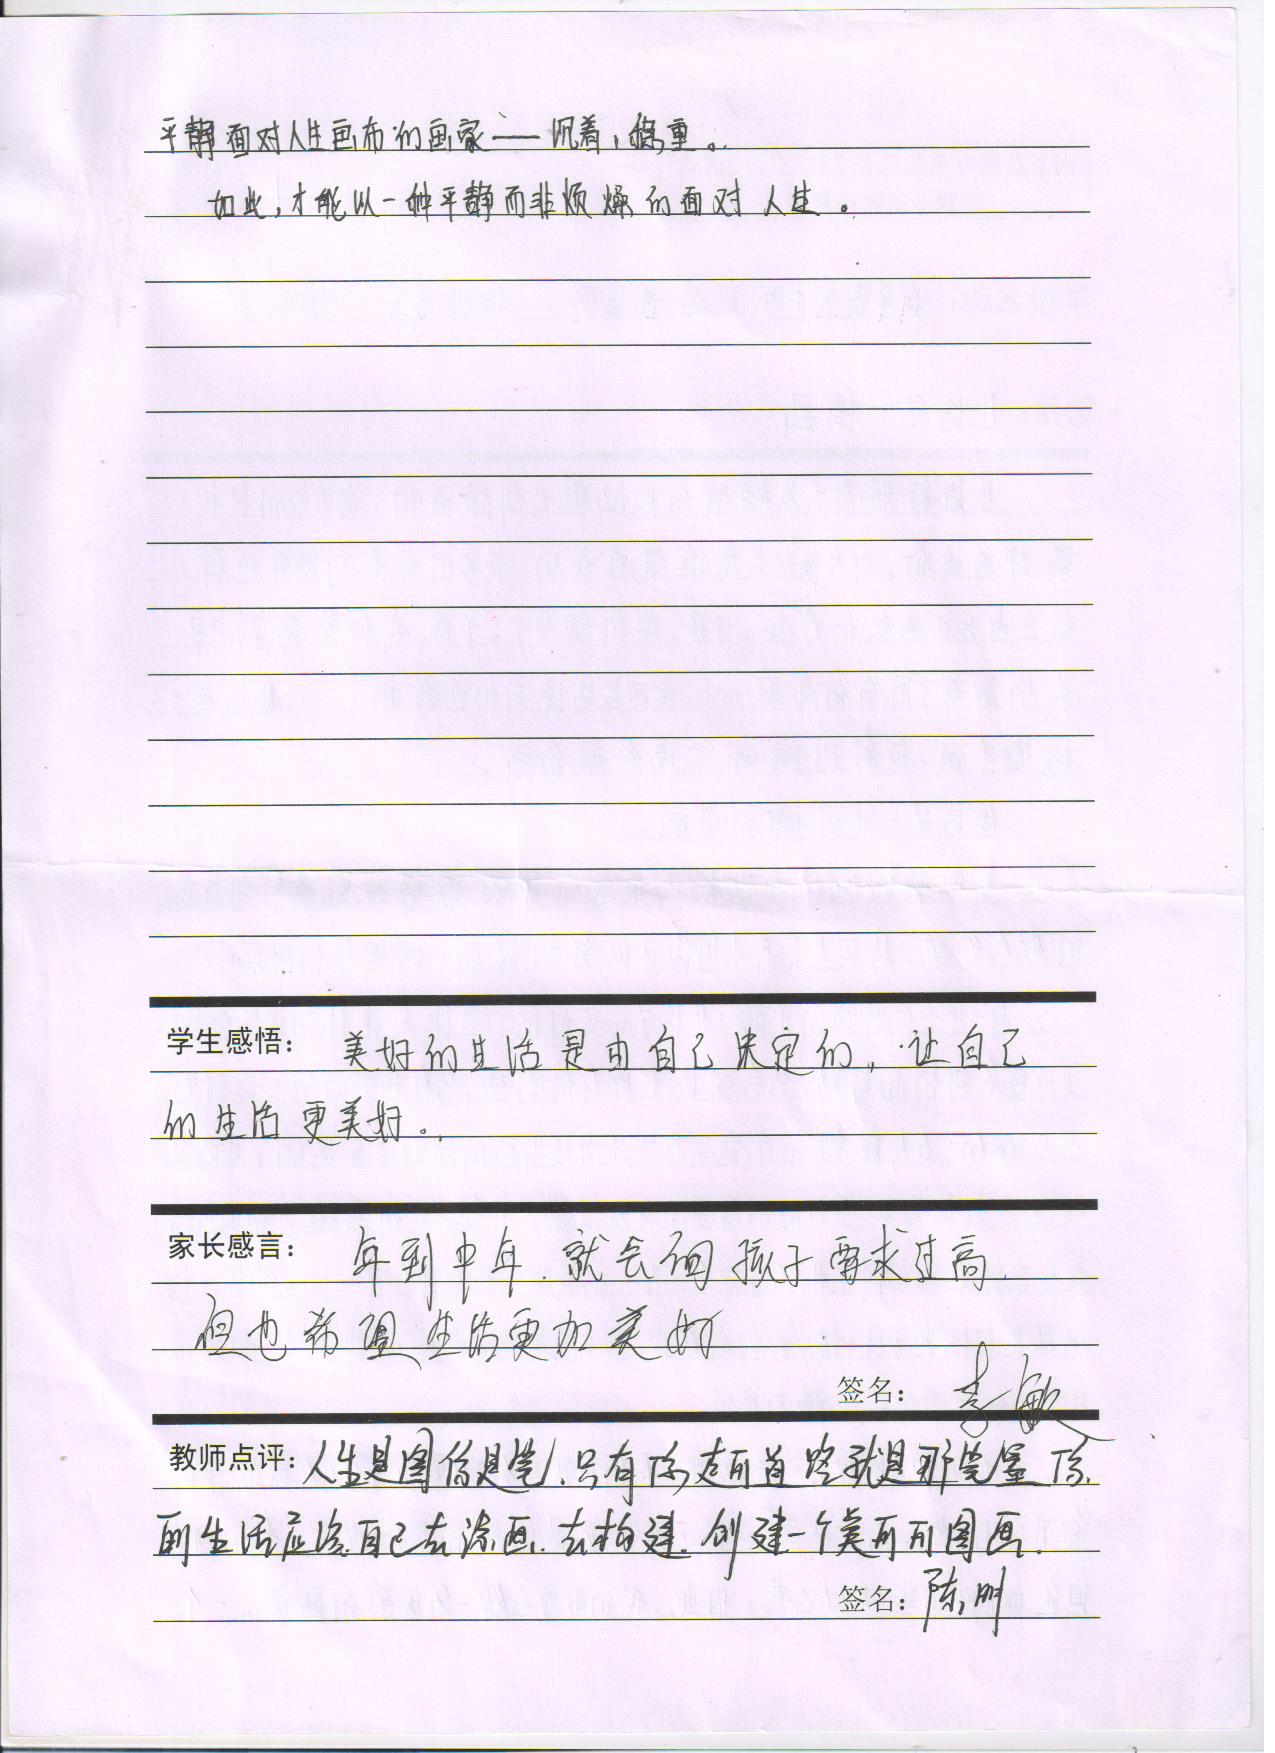 平静面对人生画布的画家——沉着,稳重。
如此,才能以一种平静而非烦燥的面对人生。
学生感悟: 美好的生活是由自己决定的,让自己
的生活更美好。
家长感言: 年到中年.就会对孩子要求过高.
但也希望生活更加美好
签名: 李敏
教师点评:人生是图你是笔.只有你走的道路就是那笔墨 你
的生活应该自己去涂画.去构建.创建一个美丽的图画.
签名:陈明